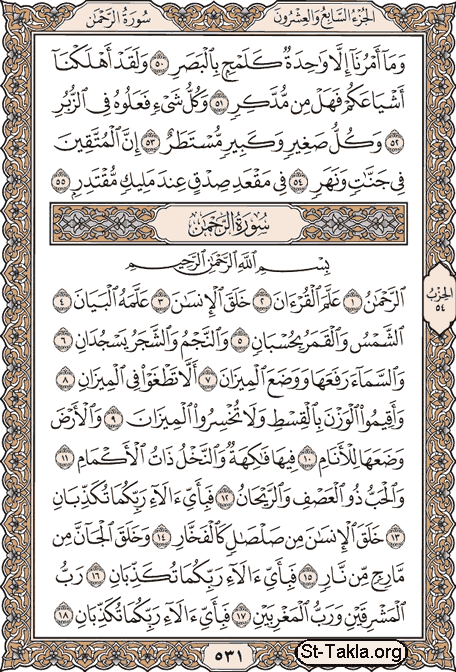 الجزء السابع والعشرون
سُورَةُ الرَّحْمَٰن
وَمَآ أَمْرُنَآ إِلَّا وَٰحِدَةٌ كَلَمْحٍۭ بِٱلْبَصَرِ ٥٠ وَلَقَدْ أَهْلَكْنَآ
أَشْيَاعَكُمْ فَهَلْ مِن مُّدَّكِرٍ ٥١ وَكُلُّ شَىْءٍ فَعَلُوهُ فِى ٱلزُّبُرِ
٥٢ وَكُلُّ صَغِيرٍ وَكَبِيرٍ مُّسْتَطَرٌ ٥٣ إِنَّ ٱلْمُتَّقِينَ
فِى جَنَّٰتٍ وَنَهَرٍ ٥٤ فِى مَقْعَدِ صِدْقٍ عِندَ مَلِيكٍ مُّقْتَدِرٍۭ ٥٥
سُورَةُ الرَّحْمَٰن
بِسْمِ ٱللَّهِ ٱلرَّحْمَٰنِ ٱلرَّحِيمِ
ٱلرَّحْمَٰنُ ١ عَلَّمَ ٱلْقُرْءَانَ ٢ خَلَقَ ٱلْإِنسَٰنَ ٣ عَلَّمَهُ ٱلْبَيَانَ ٤
ٱلشَّمْسُ وَٱلْقَمَرُ بِحُسْبَانٍ ٥ وَٱلنَّجْمُ وَٱلشَّجَرُ يَسْجُدَانِ ٦
وَٱلسَّمَآءَ رَفَعَهَا وَوَضَعَ ٱلْمِيزَانَ ٧ أَلَّا تَطْغَوْا۟ فِى ٱلْمِيزَانِ ٨
وَأَقِيمُوا۟ ٱلْوَزْنَ بِٱلْقِسْطِ وَلَا تُخْسِرُوا۟ ٱلْمِيزَانَ ٩ وَٱلْأَرْضَ
وَضَعَهَا لِلْأَنَامِ ١٠ فِيهَا فَٰكِهَةٌ وَٱلنَّخْلُ ذَاتُ ٱلْأَكْمَامِ ١١
وَٱلْحَبُّ ذُو ٱلْعَصْفِ وَٱلرَّيْحَانُ ١٢ فَبِأَىِّ ءَالَآءِ رَبِّكُمَا تُكَذِّبَانِ
١٣ خَلَقَ ٱلْإِنسَٰنَ مِن صَلْصَٰلٍ كَٱلْفَخَّارِ ١٤ وَخَلَقَ ٱلْجَآنَّ مِن
مَّارِجٍ مِّن نَّارٍ ١٥ فَبِأَىِّ ءَالَآءِ رَبِّكُمَا تُكَذِّبَانِ ١٦ رَبُّ
ٱلْمَشْرِقَيْنِ وَرَبُّ ٱلْمَغْرِبَيْنِ ١٧ فَبِأَىِّ ءَالَآءِ رَبِّكُمَا تُكَذِّبَانِ ١٨
الحزب
٥٤
٥٣١
St-Takla.org